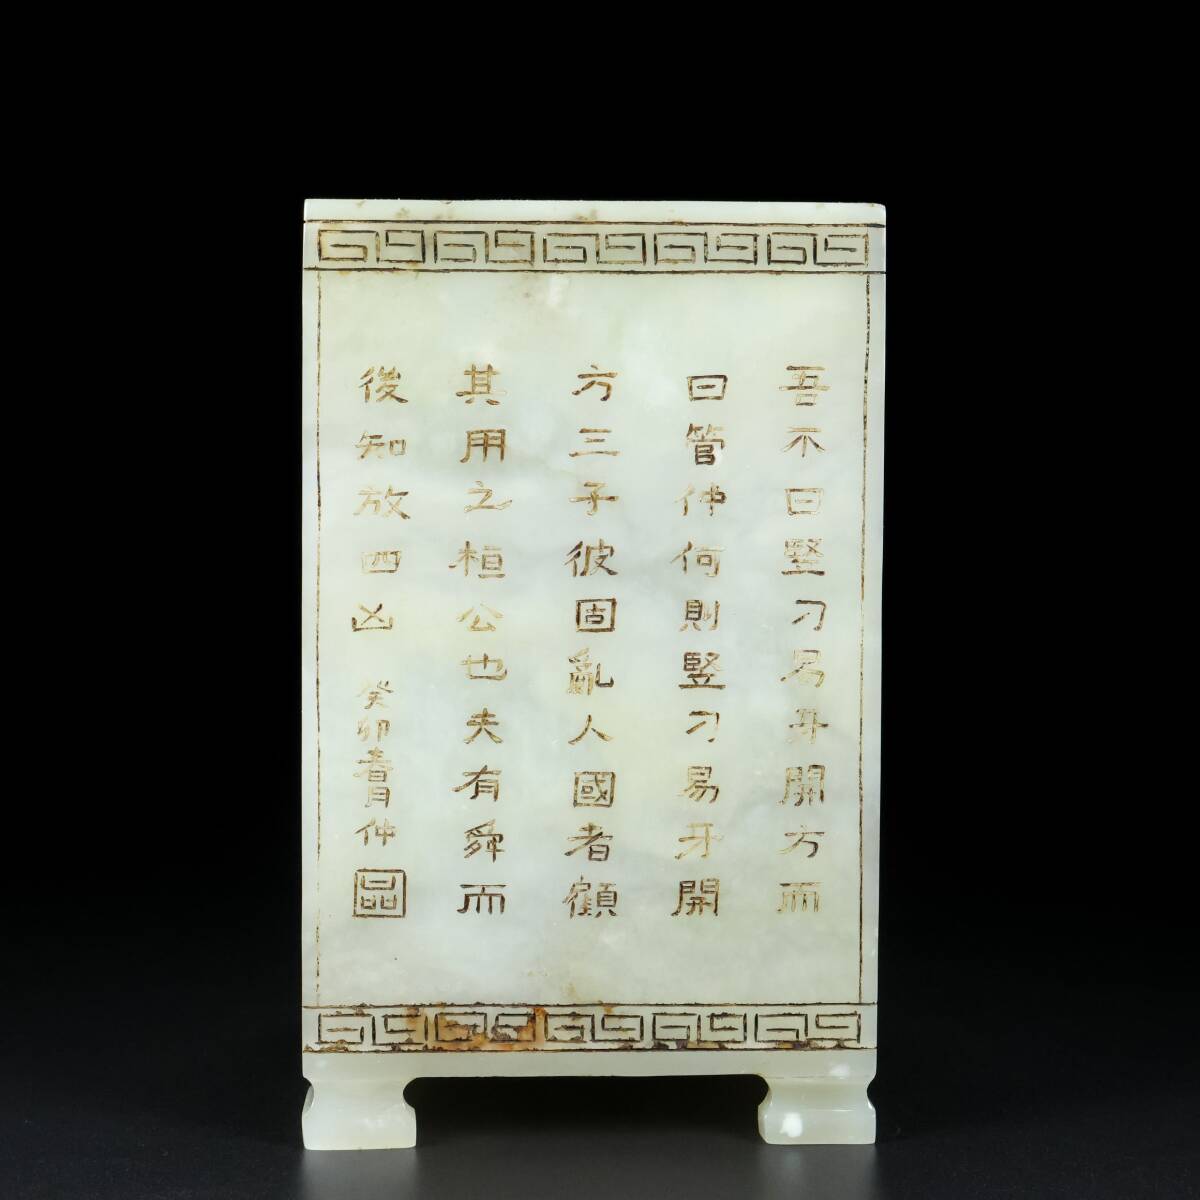 吾不曰豎刁易牙開方而
曰管仲何則豎刁易牙開
方三子彼固亂人國者顧
其用之桓公也夫有舜而
後知放四凶
癸卯春月仲